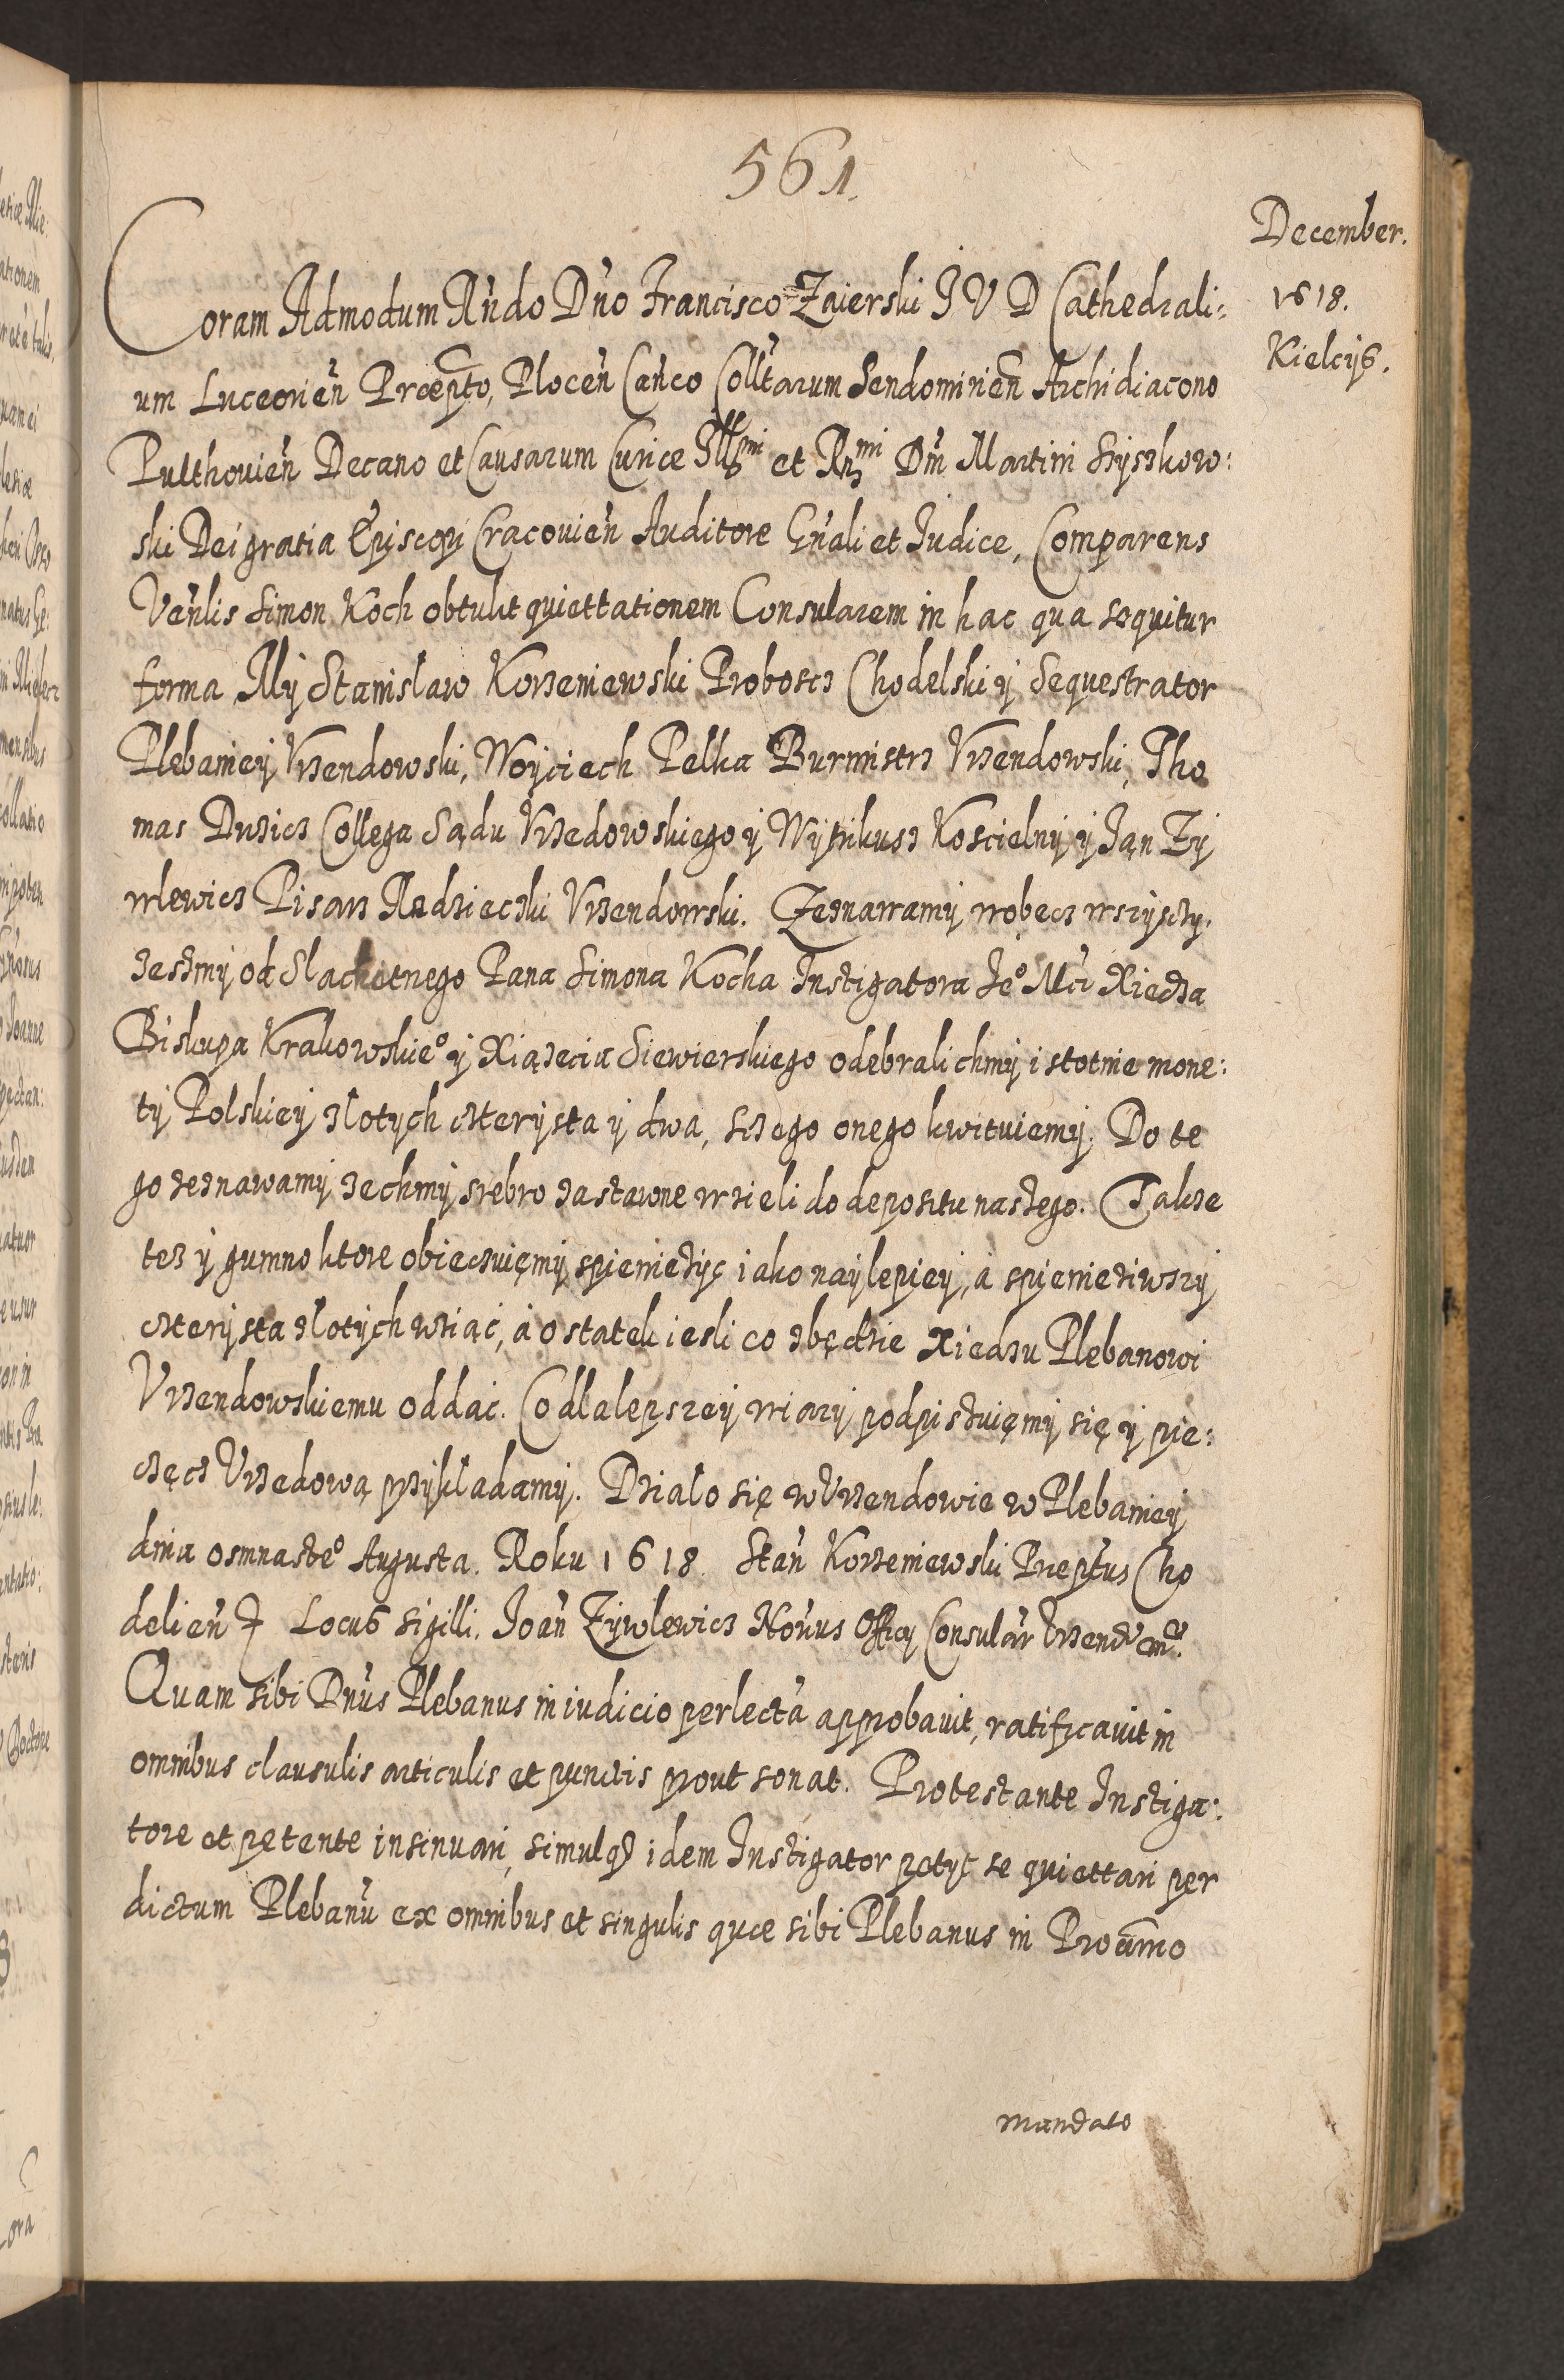 561.
December.
1618.
Kielcys.
Coram Admodum Rńdo Dńo Francisco Zaierski J V D Cathedrali:
um Luceorień Præpto, Plocen Cańco Colltarum Sendomirień Archidiacono
Pulthouień Decano et Causarum Curiæ Illmi et Rmi Dm Martini Szyszkow:
ski Dei gratia Episcopi Cracouień Auditore Gńali et Judice, Comparens
Venlis Simon Koch obtulit quiettationem Consularem in hac qua sequitur
forma My Stanislaw Korzeniewski Proboscz Chodelski y Sequestrator
Plebaniey Vrzendowski, Woyciech Pelka Burmistrz Vrzendowski, Tho
mas Duzicz Collega Sądu Vrzedowskiego y Wytrikusz Koscielny y Jan Zy
wlewicz Pisarz Radzieczki Vrzendowski. Zeznawamy wobecz wszyscy.
zeszmy od Slachetnego Pana Simona Kocha Instigatora Jeo Mci Xiedza
Biskupa Krakowskieo y Xiązecia Siewierskiego odebralichmy istotnie mone:
ty Polskiey zlotych czterysta y dwa, sczego onego kwituiemy. Do te
go zeznawamy zechmy srebro zastawne wzieli do depositu naszego. Takze
tez y gumno ktore obieczuięmy spieniezyc iako naylepiey, a spieniezywszy
czterysta zlotych wziąć, a ostatek iesli co zbędzie Xiedzu Plebanowi
Vrzendowskiemu oddać. Co dla lepszey wiary podpiszuięmy się y pie:
częcz Vrzedową przykladamy. Dzialo się w Vrzendowie w Plebaniey
dnia osmnasteo Augusta. Roku 1618. Stań Korzeniewski Preptus Cho
delień Locus sigilli. Joań Zywlewicz Notrius Officy Consular
Quam sibi Dńus Plebanus in iudicio perlectā approbauit, ratificauit in
omnibus clausulis articulis et punctis prout sonat. Protestante Instiga:
tore et petente insinuari, simulq idem Instigator petyt se quiettari per
dictum Plebanū ex omnibus et singulis quæ sibi Plebanus in
mandato